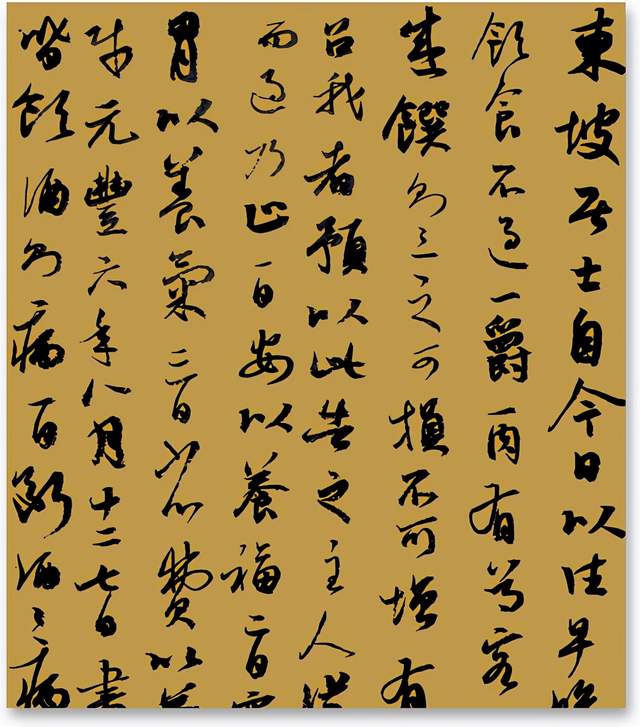 東坡居士自今日以往早晚
飲食不過一爵一肉有尊客
盛饌則三之可損不可增有
召我者預以此告之主人
而過乃止一曰安以養福二曰寬
胃以養氣三曰省費以養
財元豐六年八月十二七日書
皆飲酒則病一旦斷酒之病